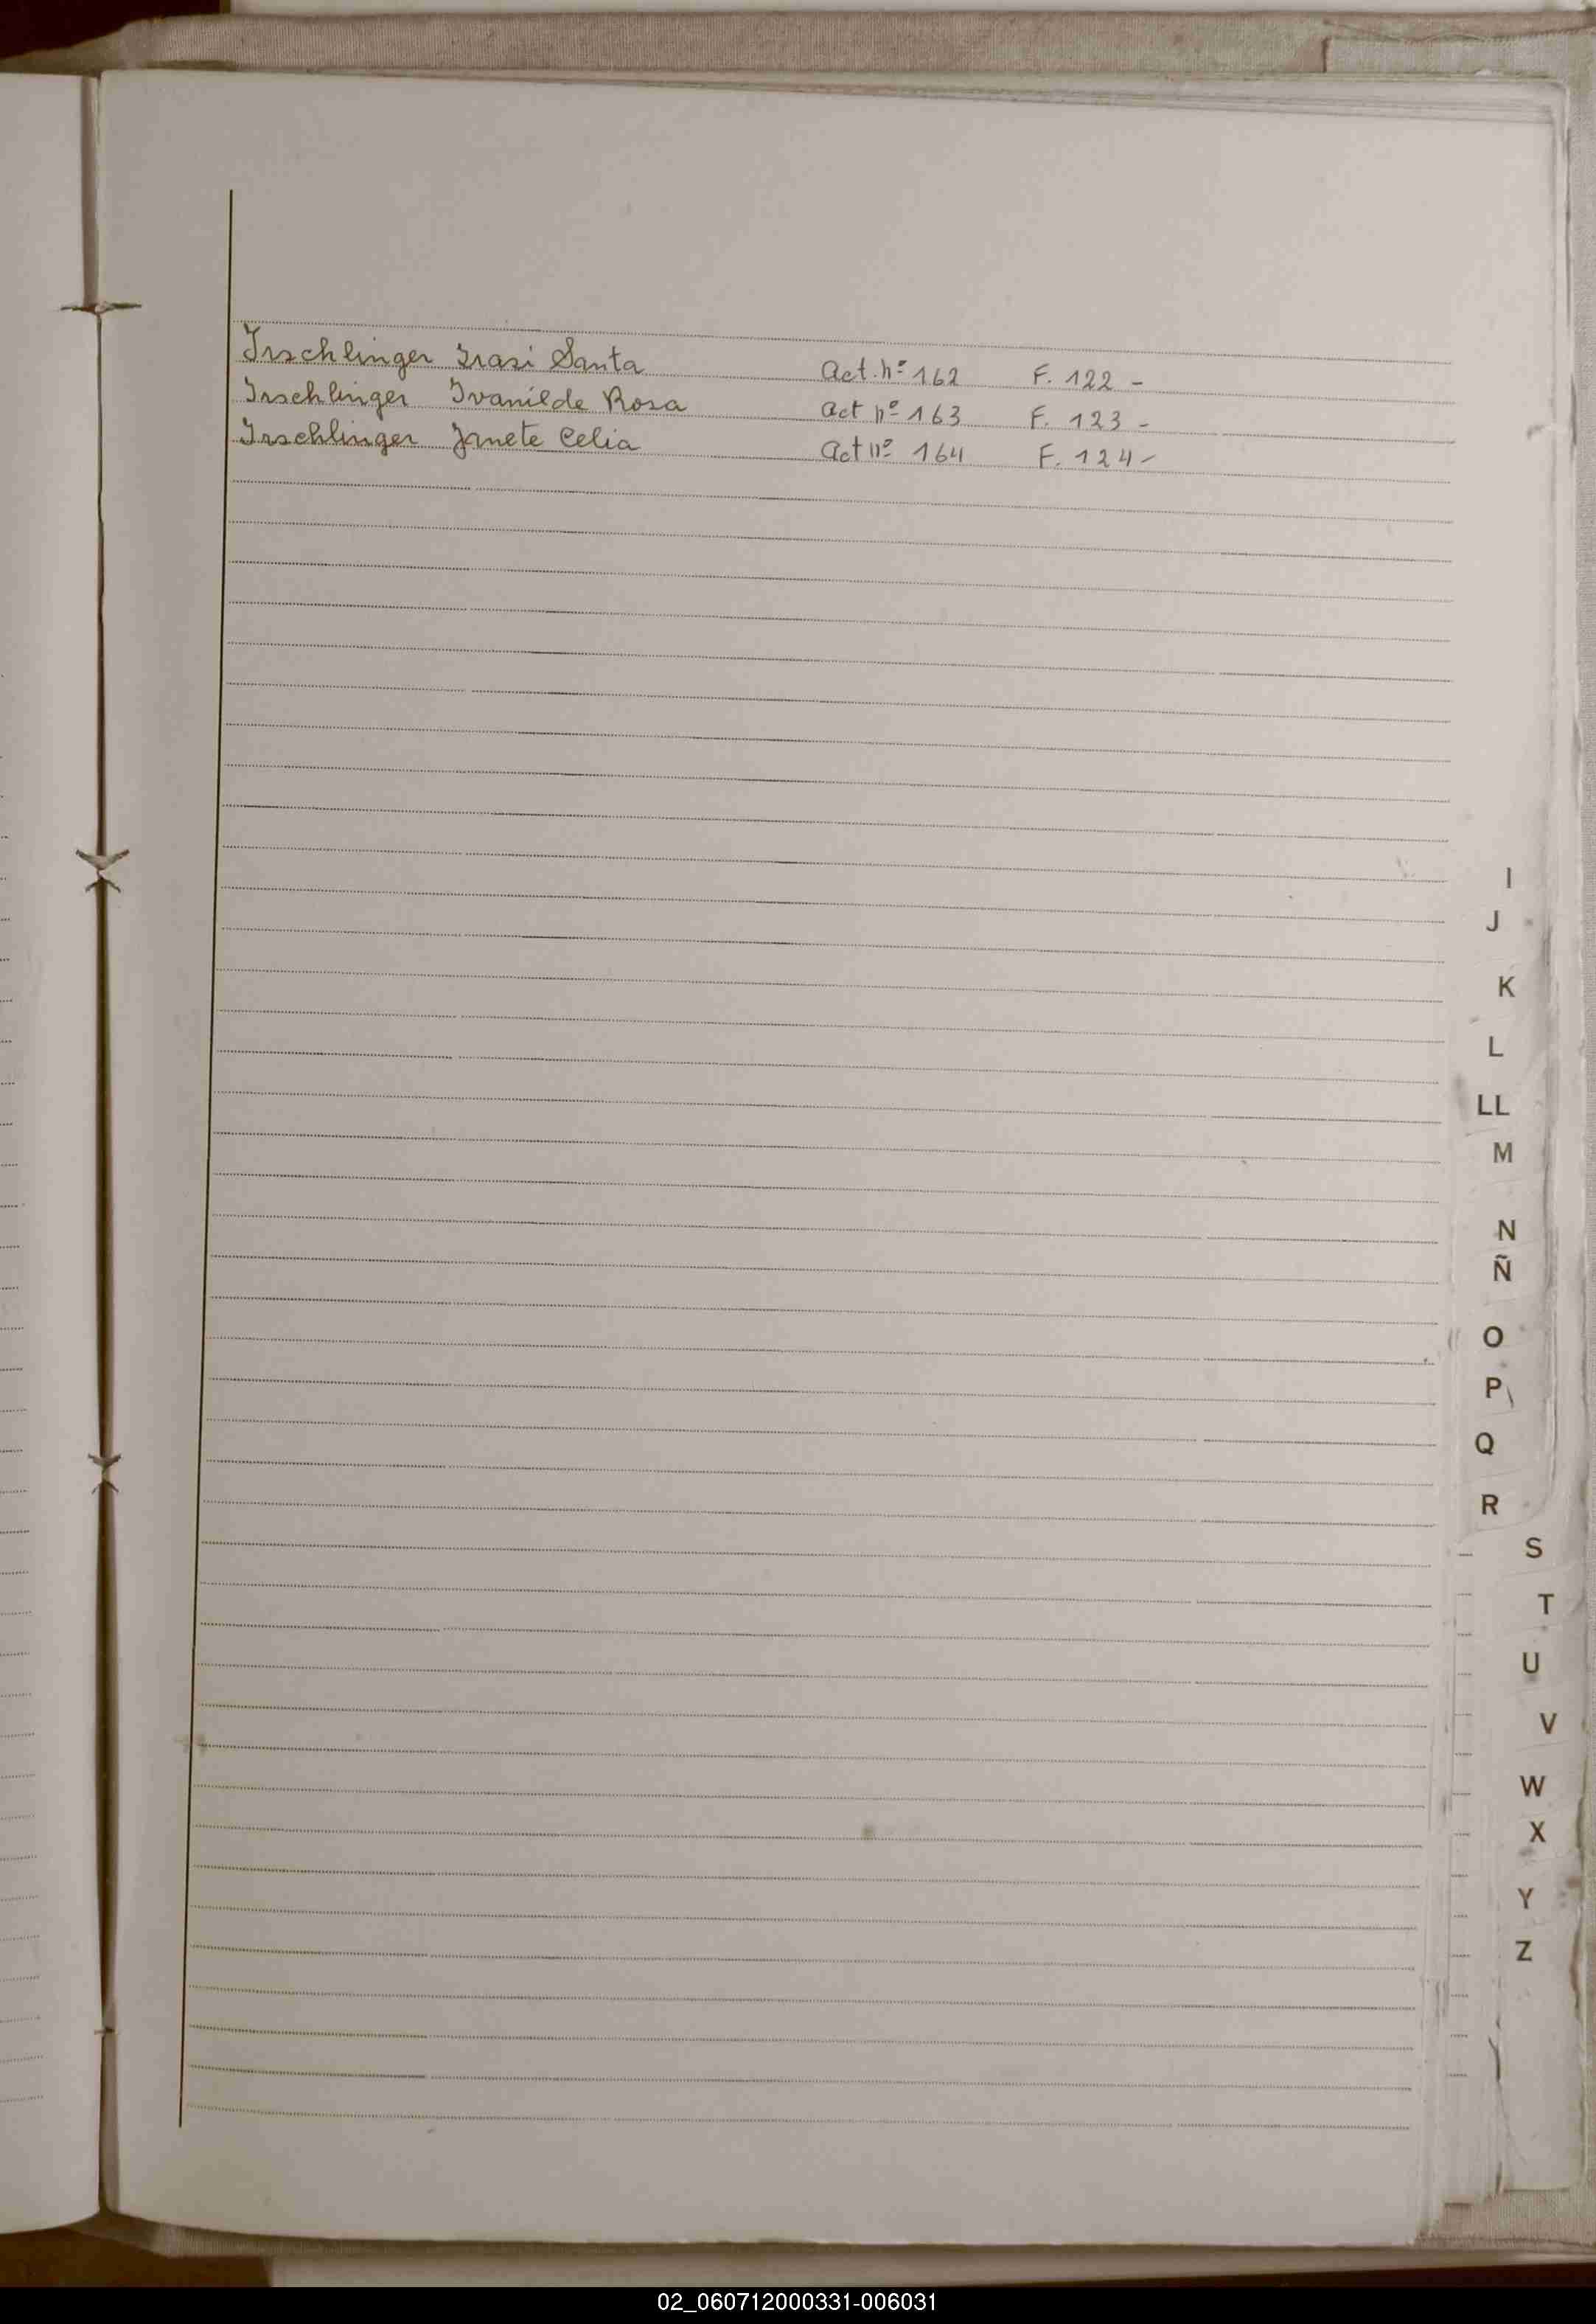 Irschlinger Irasi Santa Act. nº 162 F. 122 -
Irschlinger Ivanilde Rosa Act nº 163 F. 123 -
Irschlinger Janete Celia Act nº 164 F. 124 -
I
J
K
L
LL
M
N
Ñ
O
P
Q
R
S
T
U
V
W
X
Y
Z
02_060712000331-006031